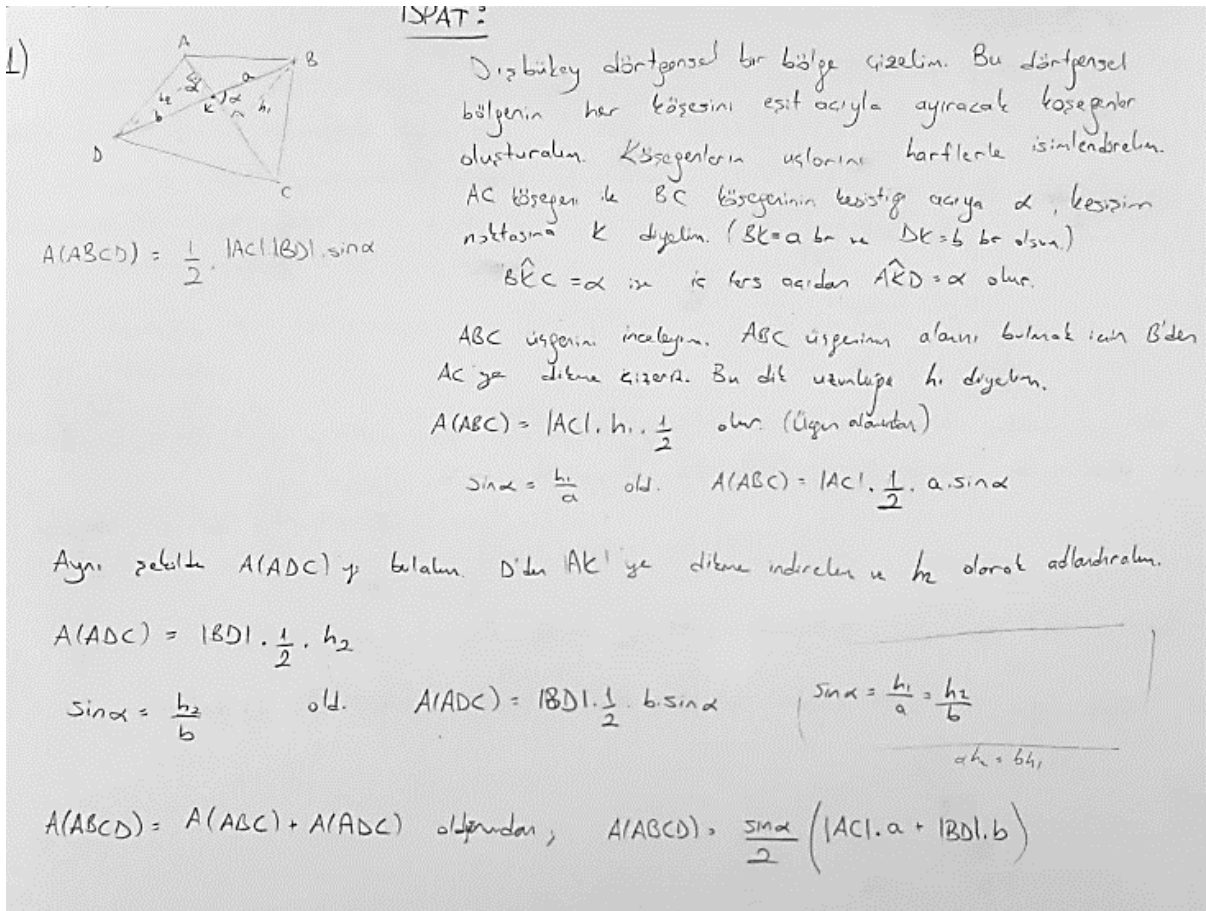 İSPAT:
1)
A
B
a
α
h2
K
α
h1
b
D
C
Dışbükey dörtgensel bir bölge çizelim. Bu dörtgensel
bölgenin her köşesini eşit açıyla ayıracak köşegenler
oluşturalım. Köşegenlerin uçlarını harflerle isimlendirelim.
AC köşegeni ile BC köşegeninin kesiştiği açıya α, kesişim
noktasına K diyelim. (BK=a br ve DK=b br olsun.)
BK̂C = α ise iç ters açıdan AK̂D = α olur.
A(ABCD) = 1/2 . |AC|.|BD|.sinα
ABC üçgenini inceleyelim. ABC üçgeninin alanını bulmak için B'den
AC'ye dikme çizeriz. Bu dik uzunluğa h1 diyelim.
A(ABC) = |AC|. h1 . 1/2 olur. (Üçgen alanından)
sinα = h1/a old. A(ABC) = |AC|. 1/2 . a.sinα
Aynı şekilde A(ADC) yi bulalım. D'den |AK|'ye dikme indirelim ve h2 olarak adlandıralım.
A(ADC) = |BD|. 1/2 . h2
sinα = h2/b old. A(ADC) = |BD|. 1/2 . b.sinα
sinα = h1/a = h2/b
ah2 = bh1
A(ABCD) = A(ABC) + A(ADC) olduğundan, A(ABCD) = sinα/2 (|AC|.a + |BD|.b)